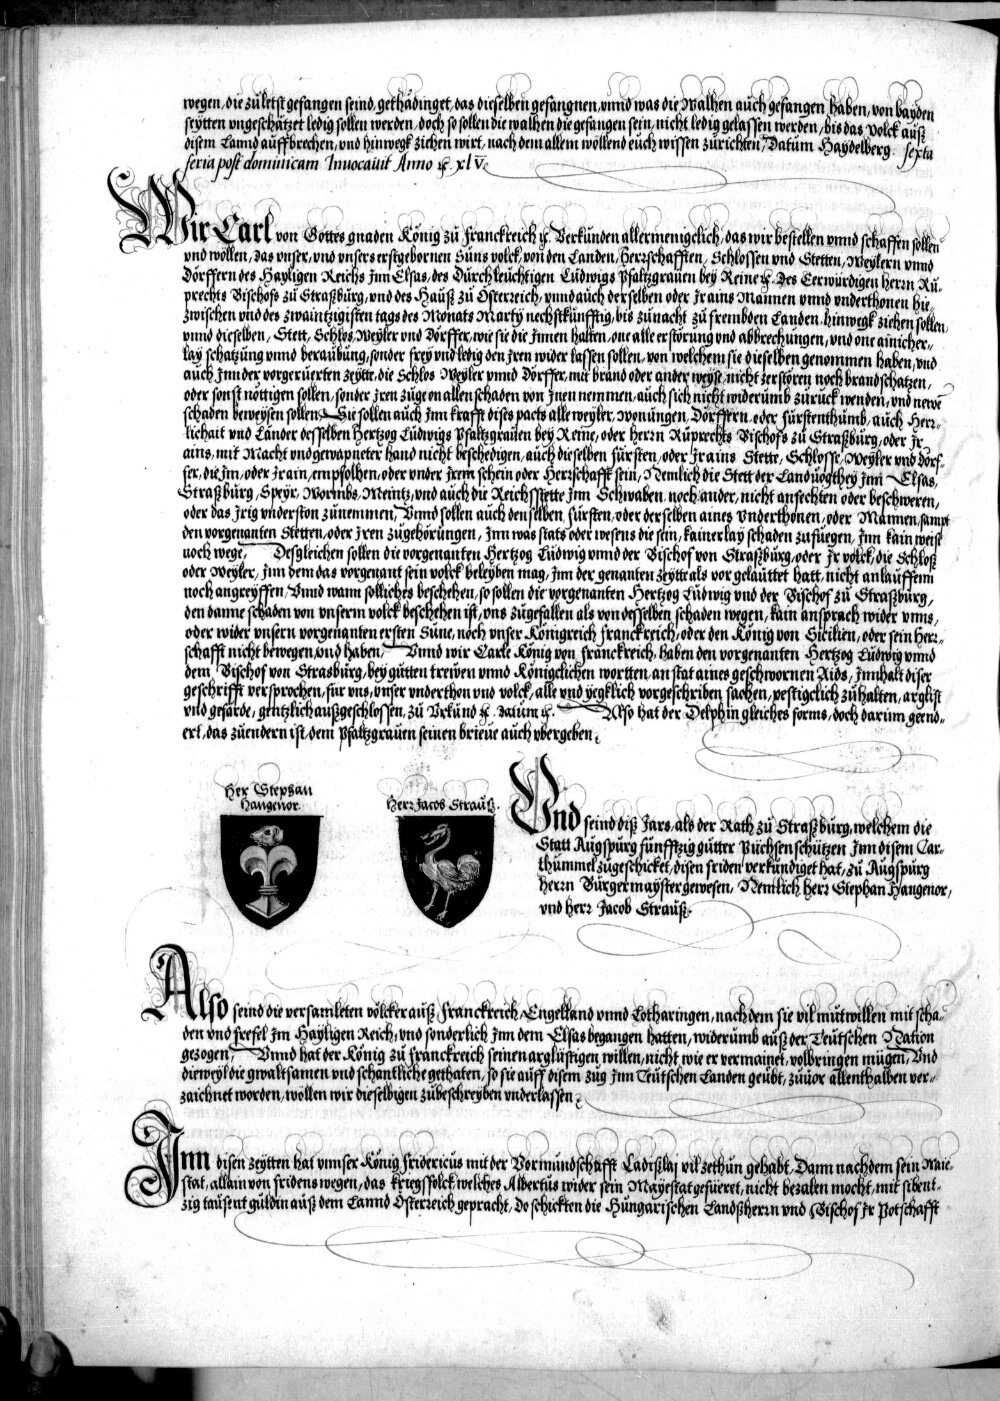 wegen, die zůletst gefangen seind, gethådinget, das dieselben gefangnen, vnnd was die Walhen aůch gefangen haben, von bayden
seytten vngeschåtzet ledig sollen werden, doch so sollen die walhen die gefangen sein, nicht ledig gelassen werden, bis das Volck aůß
disem Lannd aůffbrechen, vnd hinwegk ziehen wirt, nach dem allem wöllend eüch wissen zůrichten, Datum Haydelberg. sexta
feria post dominicam Inuocauit Anno ꝛc. xlv.
Wir Carl von Gottes gnaden König zů Franckreich ꝛc. Verkůnden allermenigclich, das wir bestellen vnnd schaffen sollen
vnd wöllen, das vnser, vnd vnsers erstgebornen Sůns volck, von den Landen, Herrschafften, Schlossen vnd Stetten, Weylern vnnd
Dörffern des Hayligen Reichs Inn Elsas, des Důrchleüchtigen Lůdwigs Pfaltzgraůen bey Reine ꝛc. Des Eerwürdigen herrn Rů-
prechts Bischofs zů Straßbůrg, vnd des Haůß zů Osterreich, vnnd aůch derselben oder Jr ains Mannen vnnd vnderthonen hie
zwischen vnd des zwaintzigisten tags des Monats Marty nechstkůnfftig, bis zůnacht zů frembden Landen hinwegk ziehen sollen
vnnd dieselben, Stett, Schlos, Weyler vnd Dörffer, wie sie die Jnnen halten, one alle erstörung vnd abbrechungen, vnd one ainicher-
lay schatzůng vnnd beraůbůng, sonder frey vnd ledig den Jren wider lassen sollen, von welchem sie dieselben genomen haben, vnd
aůch Jnn der vorgerüerten zeytte, die Schlos Weyler vnnd Dörffer, mit brand oder ander weyse, nicht zerstören noch brandschatzen,
oder sonst nöttigen sollen, sonder Jren zůg on allen schaden von Jnen nemmen, aůch sich nicht widerůmb zůrůck wenden, vnd newe
schaden beweysen sollen, Sie sollen aůch Jnn krafft dises pacts alle weyler, wonůngen, Dörffern, oder fůrstenthůmb, aůch Herr-
lichait vnd Länder desselben Hertzog Lůdwigs Pfaltzgraůen bey Reine, oder herrn Růprechts Bischofs zů Straßbůrg, oder Jr
ains, mit Macht vnd gewapneter hand nicht beschedigen, aůch dieselben fůrsten, oder Jr ains Stette, Schlosse, Weyler vnd Dörf-
fer, die Jm, oder Jr ain, empfolhen, oder vnder Jrem schein oder Herrschafft sein, Nemlich die Stett der Landůogthey Jnn Elsas,
Straßbůrg, Speyr, Wormbs, Meintz, vnd aůch die Reichsstette Jnn Schwaben, noch ander, nicht anfechten oder beschweren,
oder das Jrig vnderston zůnemmen, Vnnd sollen aůch denselben, fůrsten, oder derselben aines Vnderthonen, oder Mannen, sampt
den vorgenanten Stetten, oder Jren zůgehörůngen, Jnn was stats oder wesens die sein, kainerlay schaden zůfůegen, Jnn kain weise
noch wege, Desgleichen sollen die vorgenanten Hertzog Lůdwig vnnd der Bischof von Straßbůrg, oder Jr volck, die Schloß
oder Weyler, Jnn dem das vorgenant sein volck beleyben mag, Jnn der genanten zeytte als vor gelaůttet hatt, nicht anlaůffenn
noch angreyffen, Vnnd wann solliches beschehen, so sollen die vorgenanten Hertzog Lůdwig vnd der Bischof zů Straßbůrg,
den danne schaden von vnserm volck beschehen ist, vns zůgefallen als von desselben schaden wegen, kain ansprach wider vnns,
oder wider vnsern vorgenanten ersten Sůne, noch vnser Königreich Franckreich, oder den König von Sicilien, oder sein Herr-
schafft nicht bewegen, vnd haben, Vnnd wir Carle König von Franckreich, haben den vorgenanten Hertzog Lůdwig vnnd
dem Bischof von Strasbůrg, bey gůtten trewen vnnd Königclichen wortten, an stat aines geschwornen Aids, Jnnhalt diser
geschrifft versprochen, fůr vns, vnser vnderthon vnd volck, alle vnd yegklich vorgeschriben sachen, vestigclich zůhalten, arglist
vnd gefärde, gentzlich aůßgeschlossen, zů Vrkůnd ꝛc. datum ꝛc. Also hat der Delphin gleiches forms, doch darům geend-
ert, das zůendern ist, dem Pfaltzgraůen seinen brieůe aůch vbergeben.
Her Stephan
Hangenor.
Herr Jacob Straůß.
Vnd seind diß Jars, als der Rath zů Straßbůrg, welchem die
Statt Aůgspůrg fůnfftzig gůtter Püchsenschützen Jnn disem Car-
thůmmel zůgeschicket, disen friden verkůndiget hat, zů Aůgspůrg
Herrn Bůrgermayster gewesen, Nemlich herr Stephan Hangenor,
vnd herr Jacob Straůß.
Also seind die versamleten völcker aůß Franckreich, Engelland vnnd Lotharingen, nachdem sie vil můtwillen mit scha-
den vnd frefel Jm Hayligen Reich, vnd sonderlich Jnn dem Elsas begangen hatten, widerůmb aůß der Teütschen Nation
gezogen, Vnnd hat der König zů Franckreich seinen arglüstigen willen, nicht wie er vermainet, volbringen mügen, Vnd
dieweyl die gwaltsamen vnd schantliche gethaten, so sie aůff disem zůg Jnn Teütschen Landen geübt, zůuor allenthalben ver-
zaichnet worden, wöllen wir dieselbigen zůbeschreyben vnderlassen.
Jnn disen zeytten hat vnnser König Fridericus mit der Vormůndschafft Ladißlaj vil zethůn gehabt, Dann nachdem sein Maie-
stat, allain von fridens wegen, das kriegsfolck welches Albertus wider sein Mayestat gefüeret, nicht bezalen mocht, mit sibent-
zig taůsent gůldin aůß dem Lannd Osterreich gepracht, Do schickten die Hůngarischen Landßherrn vnd Bischof Jr Potschafft